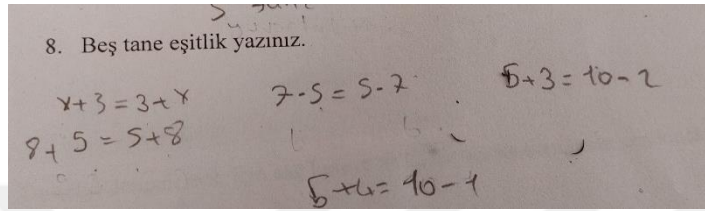 8. Beş tane eşitlik yazınız.
x+3=3+x
7-5=5-7
5+3=10-2
8+5=5+8
5+4=10-1